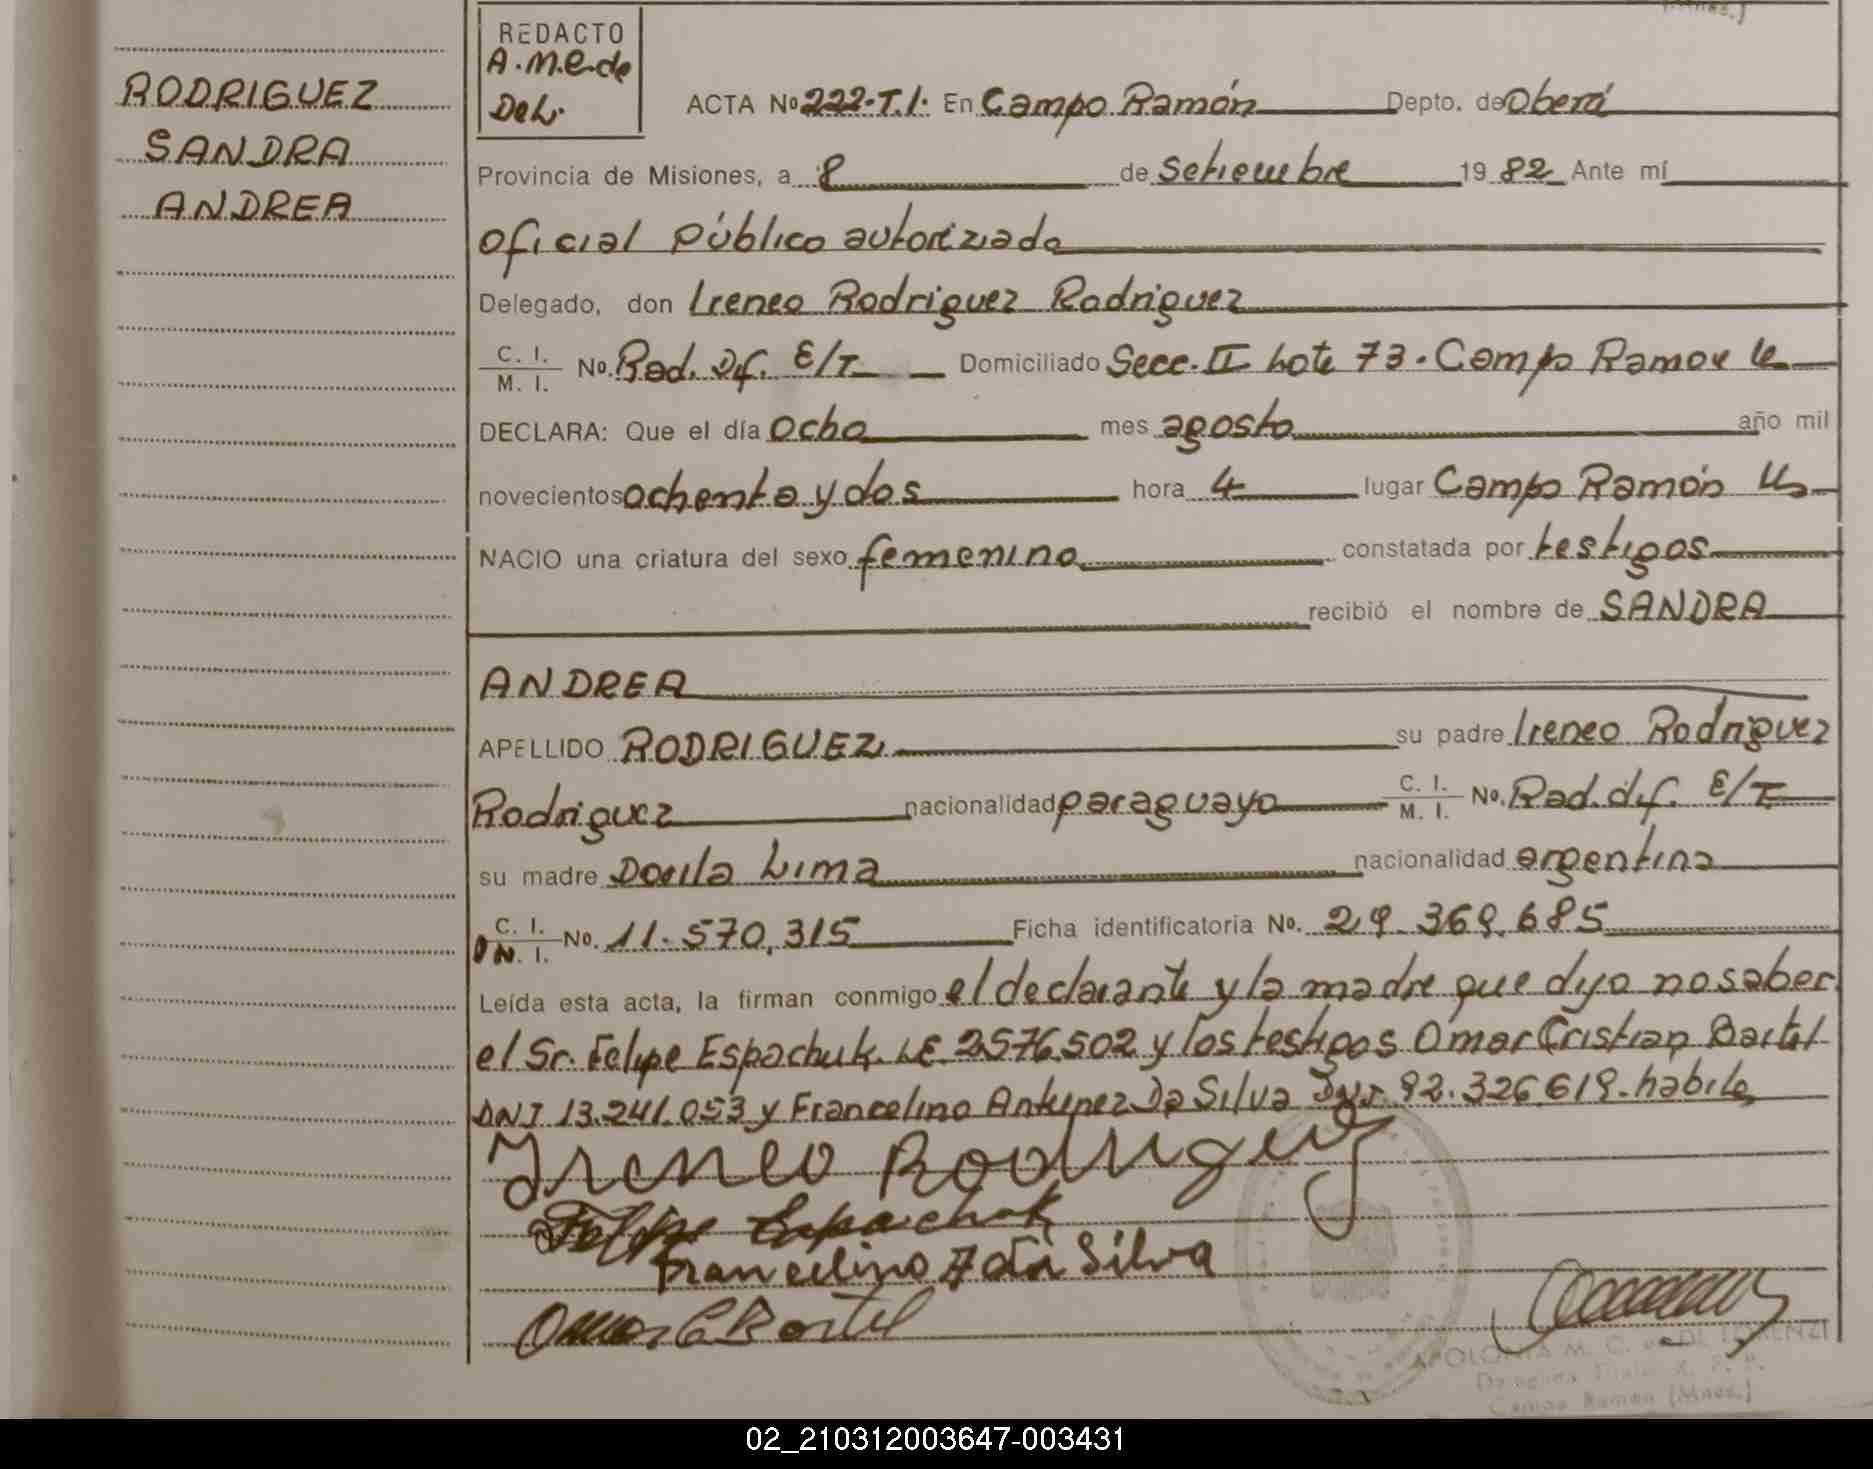 RODRIGUEZ
SANDRA
ANDREA
REDACTO
A.M.C. de
De L.
ACTA No 222. T.I. En Campo Ramón Depto. de Oberá
Provincia de Misiones, a 8 de setiembre 19 82 Ante mí
oficial público autorizado
Delegado, don Ireneo Rodriguez Rodriguez
C. I. / M. I. No. Rad. Df. E/T Domiciliado Secc. II Lote 73. Campo Ramon
DECLARA: Que el día ocho mes agosto año mil
novecientos ochenta y dos hora 4 lugar Campo Ramón
NACIO una criatura del sexo femenino constatada por testigos
recibió el nombre de SANDRA
ANDREA
APELLIDO RODRIGUEZ su padre Ireneo Rodriguez
Rodriguez nacionalidad paraguayo C. I. / M. I. No. Rad. df. E/T
su madre Dorila Lima nacionalidad argentina
C. I. / D N. I. No. 11.570,315 Ficha identificatoria No. 29.369.685
Leída esta acta, la firman conmigo el declarante y la madre que dijo no saber
el Sr. Felipe Espachuk LE 2576.502 y los testigos Omar Cristian Bartel
DNI 13.241.053 y Francelino Antunez Da Silva DNI 92.326.619. habiles
Ireneo Rodriguez
Felipe Espachuk
Francelino A da Silva
Omar C Bartel
APOLONIA M. C. DE LORENZI
Campo Ramón (Mnes.)
02_210312003647-003431